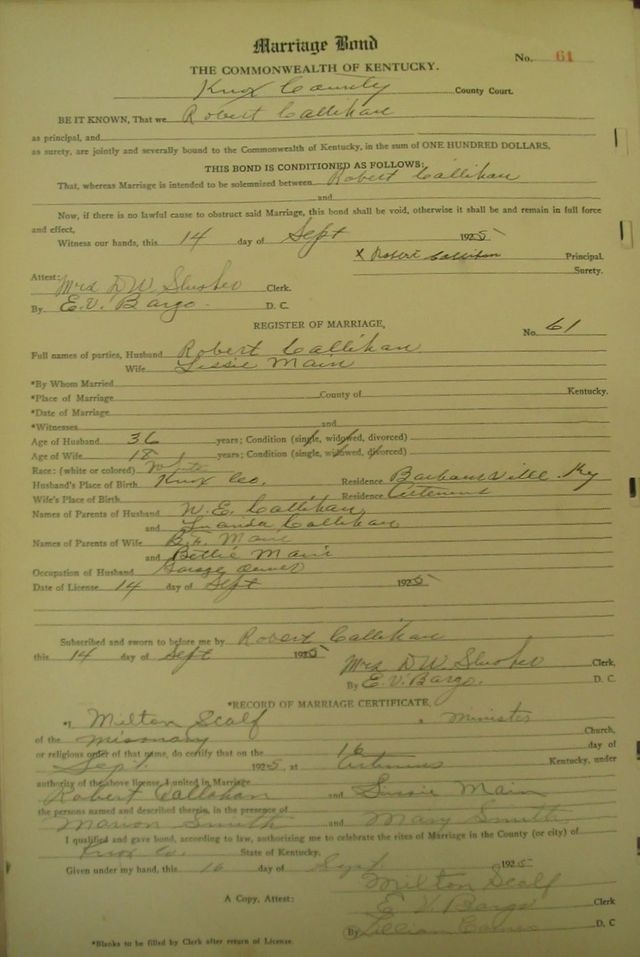 Marriage Bond
No. 61
THE COMMONWEALTH OF KENTUCKY.
Knox County County Court.
BE IT KNOWN, That we Robert Callihan
as principal, and
as surety, are jointly and severally bound to the Commonwealth of Kentucky, in the sum of ONE HUNDRED DOLLARS.
THIS BOND IS CONDITIONED AS FOLLOWS:
That, whereas Marriage is intended to be solemnized between Robert Callihan
and
Now, if there is no lawful cause to obstruct said Marriage, this bond shall be void, otherwise it shall be and remain in full force
and effect,
Witness our hands, this 14 day of Sept 1925
x Robert Callihan Principal.
Surety.
Attest:
Mrs D W Slusher Clerk.
By E. V. Bargo. D. C.
REGISTER OF MARRIAGE,
No. 61
Full names of parties, Husband Robert Callihan
Wife Main
*By Whom Married
*Place of Marriage County of Kentucky.
*Date of Marriage
*Witnesses and
Age of Husband 36 years; Condition (single, widowed, divorced)
Age of Wife 18 years; Condition (single, widowed, divorced)
Race: (white or colored) White
Husband's Place of Birth Knox Co. Residence Barbourville Ky
Wife's Place of Birth Residence Artemus
Names of Parents of Husband W. E. Callihan
and Callihan
Names of Parents of Wife Main
and Bettie Main
Occupation of Husband Garage owner
Date of License 14 day of Sept 1925
Subscribed and sworn to before me by Robert Callihan
this 14 day of Sept 1925
Mrs D W Slusher Clerk,
By E. V. Bargo. D. C.
*RECORD OF MARRIAGE CERTIFICATE,
*I, Milton Scalf a Minister
of the Missonary Church,
or religious order of that name, do certify that on the 16 day of
Sept 1925, at Artemus Kentucky, under
authority of the above license, I united in Marriage
Robert Callahan and Main
the persons named and described therein, in the presence of
Marion Smith and Mary Smith
I qualified and gave bond, according to law, authorizing me to celebrate the rites of Marriage in the County (or city) of
Knox Co. State of Kentucky.
Given under my hand, this 16 day of Sept 1925
Milton Scalf
A Copy, Attest: E V Bargo Clerk
By Lillian D. C
*Blanks to be filled by Clerk after return of License.